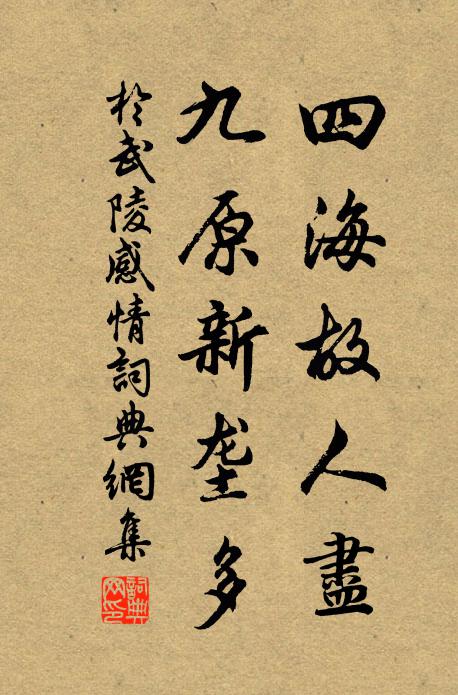 四海故人盡
九原新垄多
於武陵感情詞典網集
詞典網印